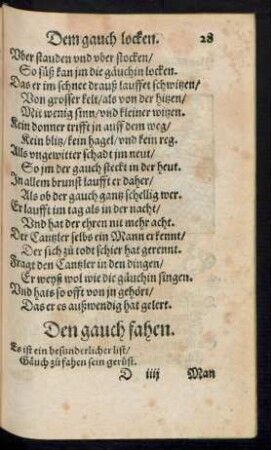 Dem gauch locken. 28
Vber stauden vnd vber stocken/
So süß kan jm die gäuchin locken.
Das er im schnee drauß lauffet schwitzen/
Von grosser kelt/als von der hitzen/
Mit wenig sinn/vnd kleiner witzen.
Kein donner trifft jn auff dem weg/
Kein blitz/kein hagel/vnd kein reg.
Als vngewitter schadt jm neut/
So jm der gauch steckt in der heut.
In allem brunst laufft er daher/
Als ob der gauch gantz schellig wer.
Er laufft im tag als in der nacht/
Vnd hat der ehren nit mehr acht.
Der Cantzler selbs ein Mann erkennt/
Der sich zů todt schier hat gerennt.
Fragt den Cantzler in den dingen/
Er weyß wol wie die gäuchin singen.
Vnd hats so offt von jn gehört/
Das er es außwendig hat gelert.
Den gauch fahen.
Es ist ein besunderlicher list/
Gäuch zů fahen sein gerüst.
D iiij Man